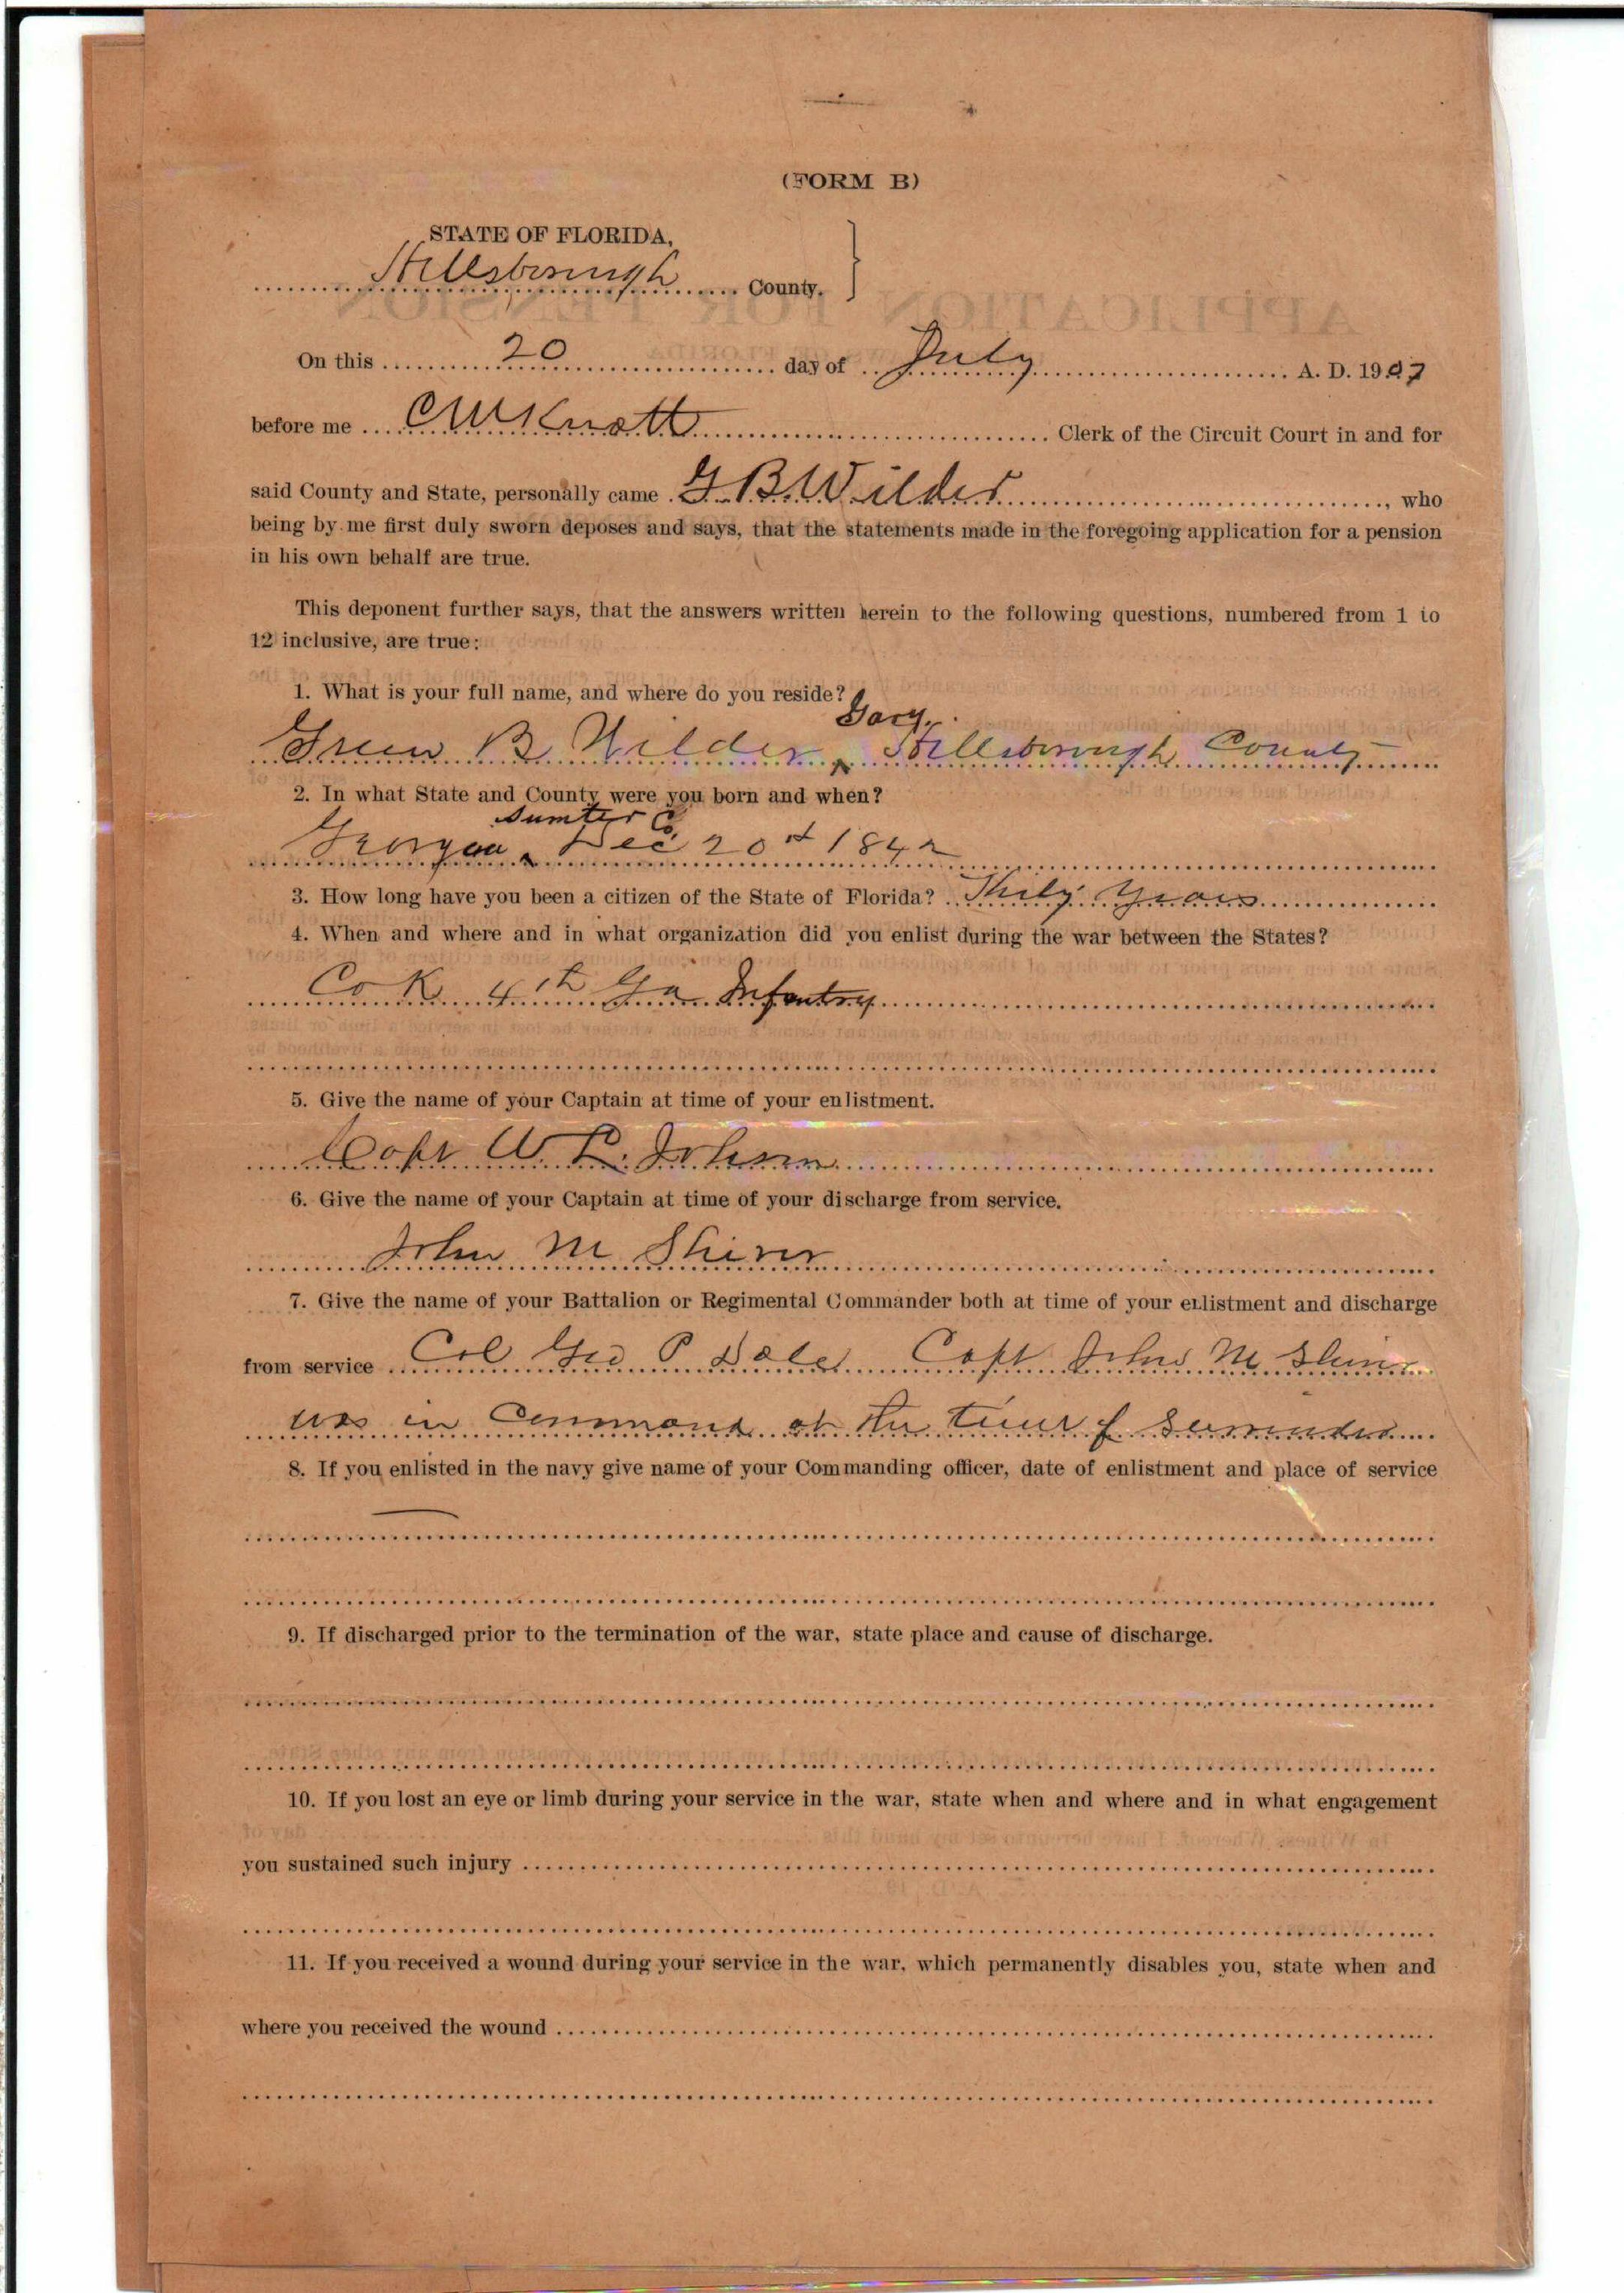 (FORM B)
STATE OF FLORIDA,
Hillsborough County.
On this 20 day of July A. D. 1907
before me C W Knott Clerk of the Circuit Court in and for
said County and State, personally came G. B. Wilder, who
being by me first duly sworn deposes and says, that the statements made in the foregoing application for a pension
in his own behalf are true.
This deponent further says, that the answers written herein to the following questions, numbered from 1 to
12 inclusive, are true:
1. What is your full name, and where do you reside?
Gary.
Green B Wilder ^ Hillsborough County
2. In what State and County were you born and when?
Sumter Co
Georgia ^ Dec 20 1842
3. How long have you been a citizen of the State of Florida? Years
4. When and where and in what organization did you enlist during the war between the States?
Co K 4th Ga Infantry
5. Give the name of your Captain at time of your enlistment.
Capt W. L. Johnson
6. Give the name of your Captain at time of your discharge from service.
John M Shiver
7. Give the name of your Battalion or Regimental Commander both at time of your enlistment and discharge
from service Col Geo P Capt John M Shiver
was in Command at the time of Surrender
8. If you enlisted in the navy give name of your Commanding officer, date of enlistment and place of service
9. If discharged prior to the termination of the war, state place and cause of discharge.
10. If you lost an eye or limb during your service in the war, state when and where and in what engagement
you sustained such injury
11. If you received a wound during your service in the war, which permanently disables you, state when and
where you received the wound